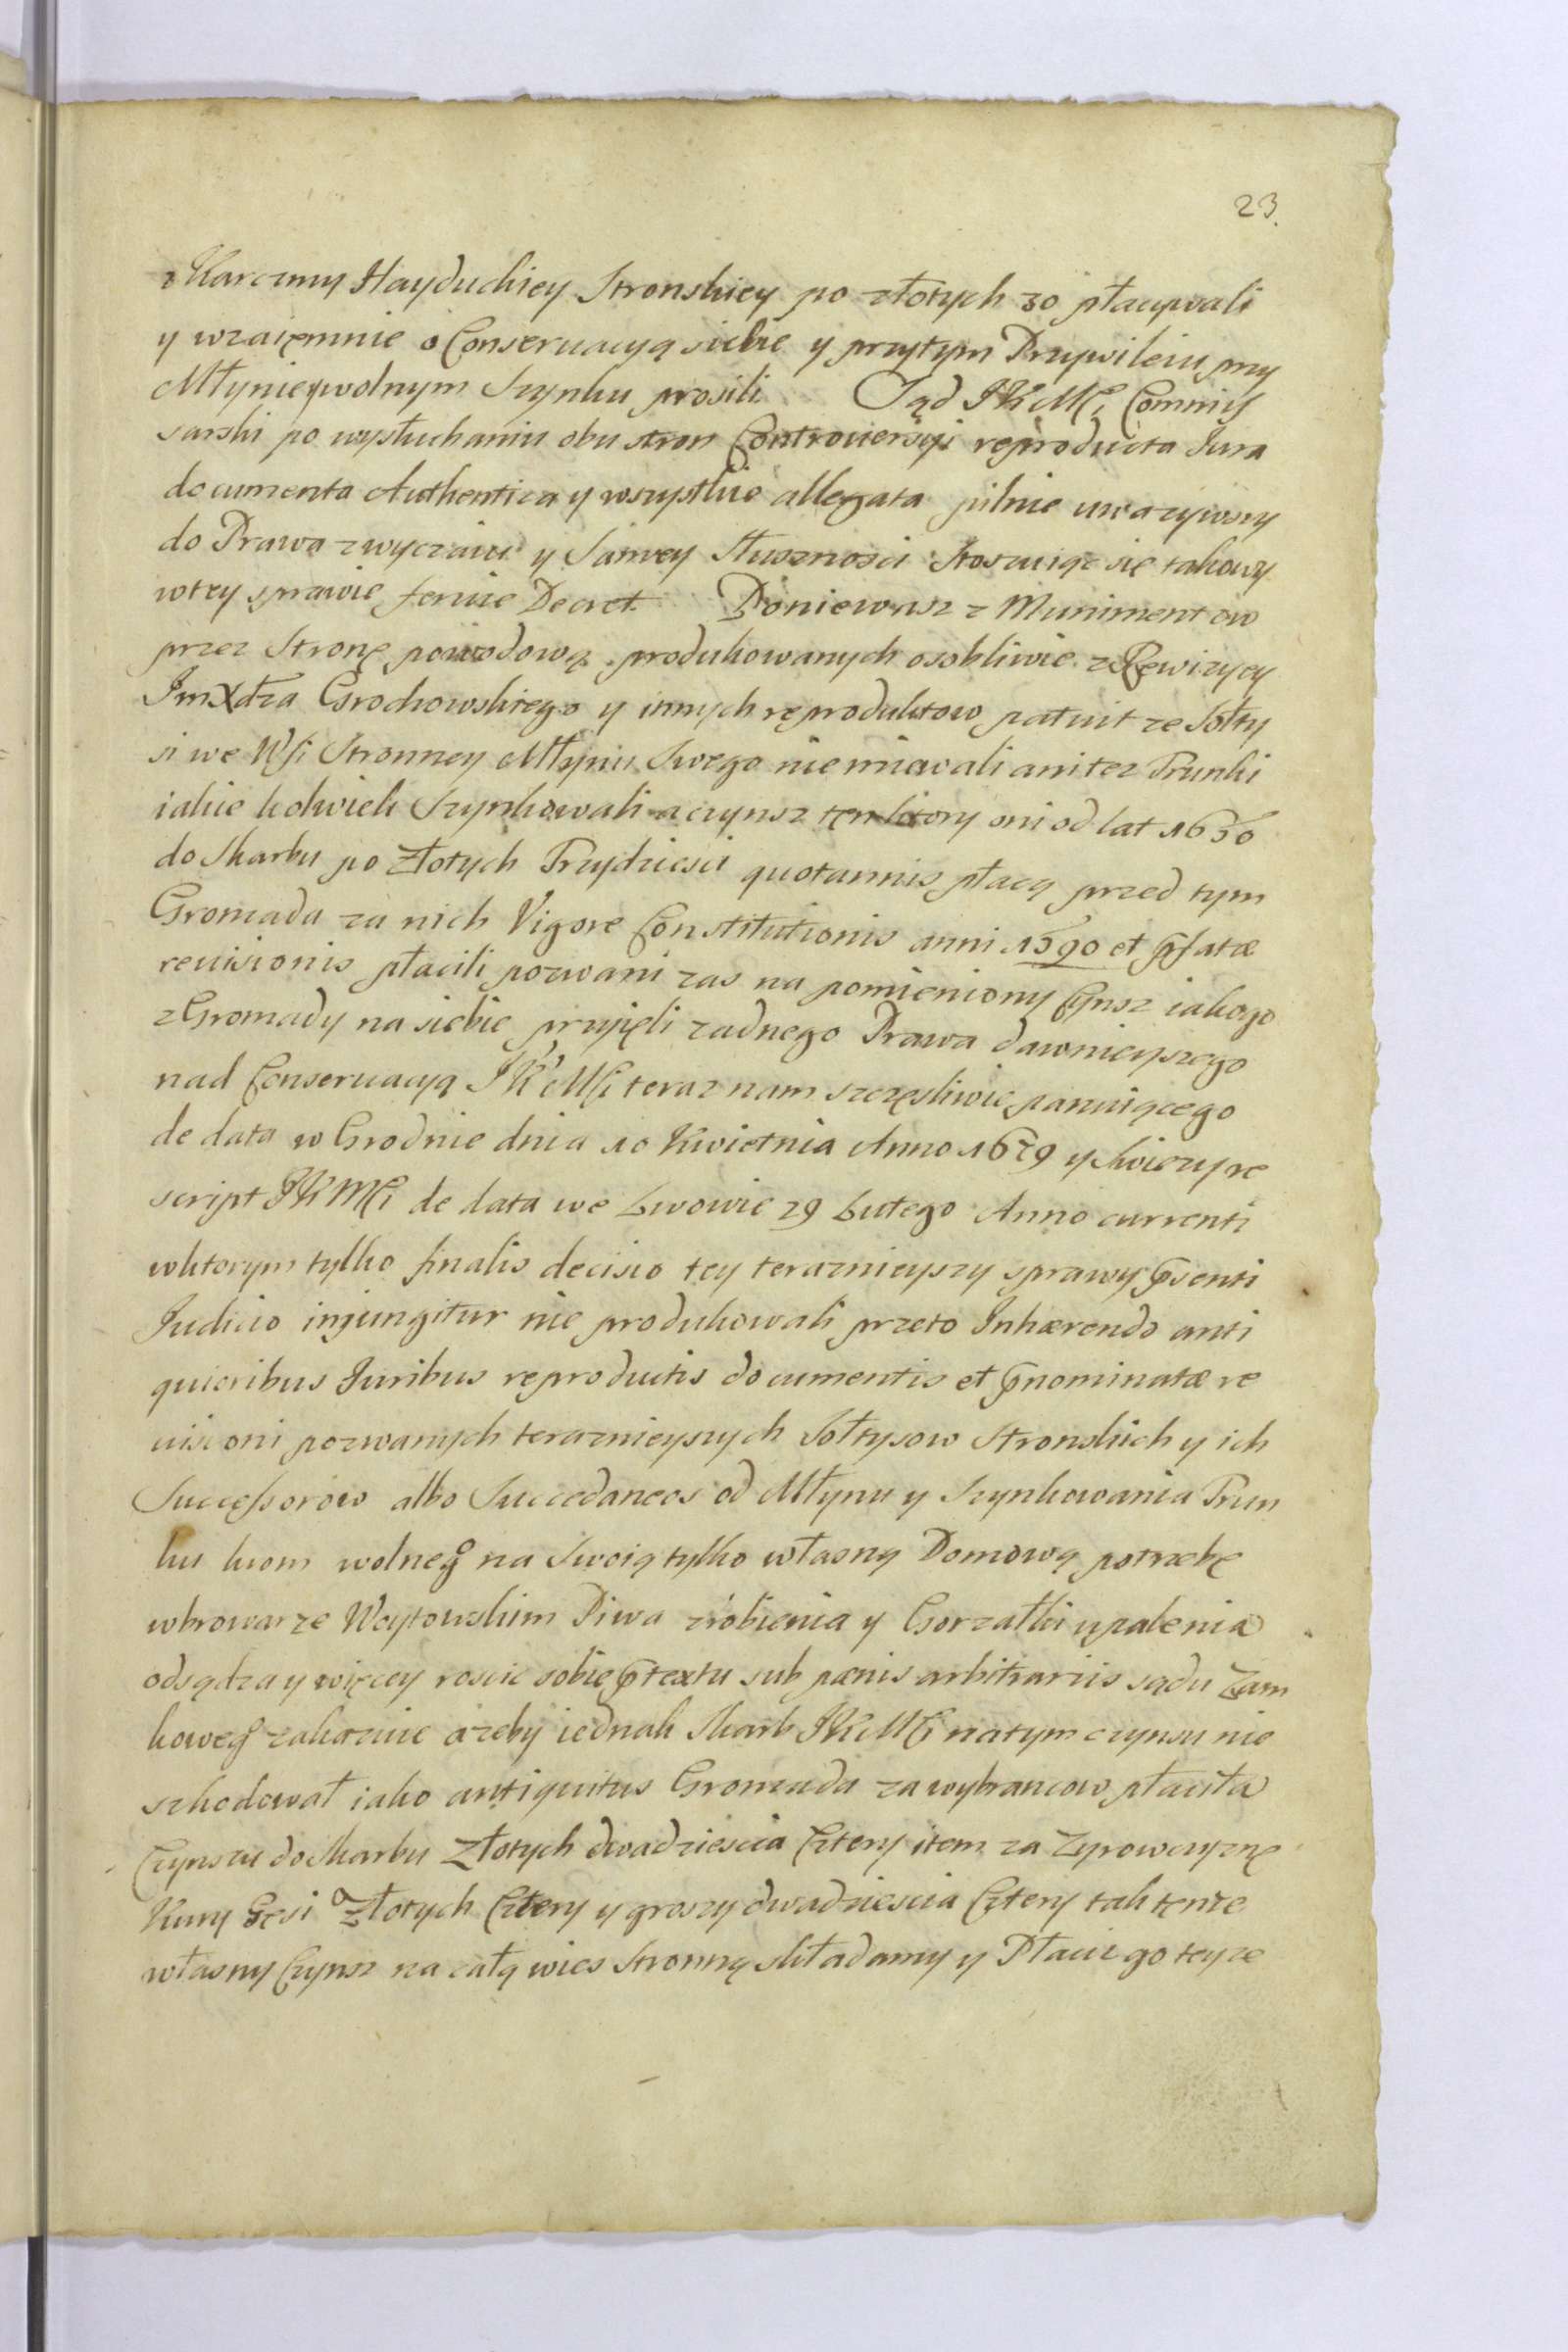 23.
z Karczmy Hayduckiey Stronskiey po złotych 30 płacywali
y wzaięmnie o Conseruacyą siebie y przytym Przywileiu przy
Młynie y wolnym Szynku prosili Sąd JKMCi Commis
sarski po wysłuchaniu obu stron Controuersyi reproducta Iura
documenta Authentica y wszystkie allegata pilnie uwazywszy
do Prawa zwyczaiu y Samey Słusznosci Stosuiąc się takowy
wtey sprawie feruie Decret Poniewasz z Munimentow
przez Stronę powodową produkowanych osobliwie z Rewizyey
ImXdza Grochowskiego y innych reproduktow patuit ze Sołty
si we Wsi Stronney Młynu Swego niemiewali ani tez Trunki
iakie kolwiek Szynkowali a czynsz ten ktory oni od lat 1650
do Skarbu po Złotych Trzydziesci quotannis płacą przed tym
Gromada za nich Vigore Constitutionis anni 1590 et pfatæ
reuisionis płacili pozwani zas na pomieniony Czynsz iakogo
z Gromady na siebie przyięli zadnego Prawa dawnieyszego
nad Conseruacyą JKMCi teraz nam szczęsliwie panuiącego
de data w Grodnie dnia 10 Kwietnia Anno 1679 y swiezy re
script JKMCi de data we Lwowie 29 Lutego Anno currenti
wktorym tylko finalis decisio tey teraznieyszy sprawy psenti
Iudicio injungitur nie produkowali przeto Inhærendo anti
quioribus Iuribus reproductis documentis et pnominatæ re
uisioni pozwanych teraznieyszych Sołtysow Stronskich y ich
Successorow albo Succedaneos od Młynu y Szynkowania Trun
ku krom wolneg na Swoią tylko własną Domową potrzebę
wbrowarze Woytowskim Piwa zrobienia y Gorzałki upalenia
odsądza y więcey roscic sobie ptextu sub pænis arbitrariis sądu Zam
koweg zakazuie azeby iednak Skarb JKMCi natym czynszu nie
szkodował iako antiquitus Gromada za wybrancow płaciła
Czynszu do Skarbu Złotych dwadziescia Cztery item za Zyrowczyznę
Kury Gęsi a Złotych Cztery y groszy dwadziescia Cztery tak tenze
własny Czynsz na całą wies Stronną składamy y Płacic go teyze